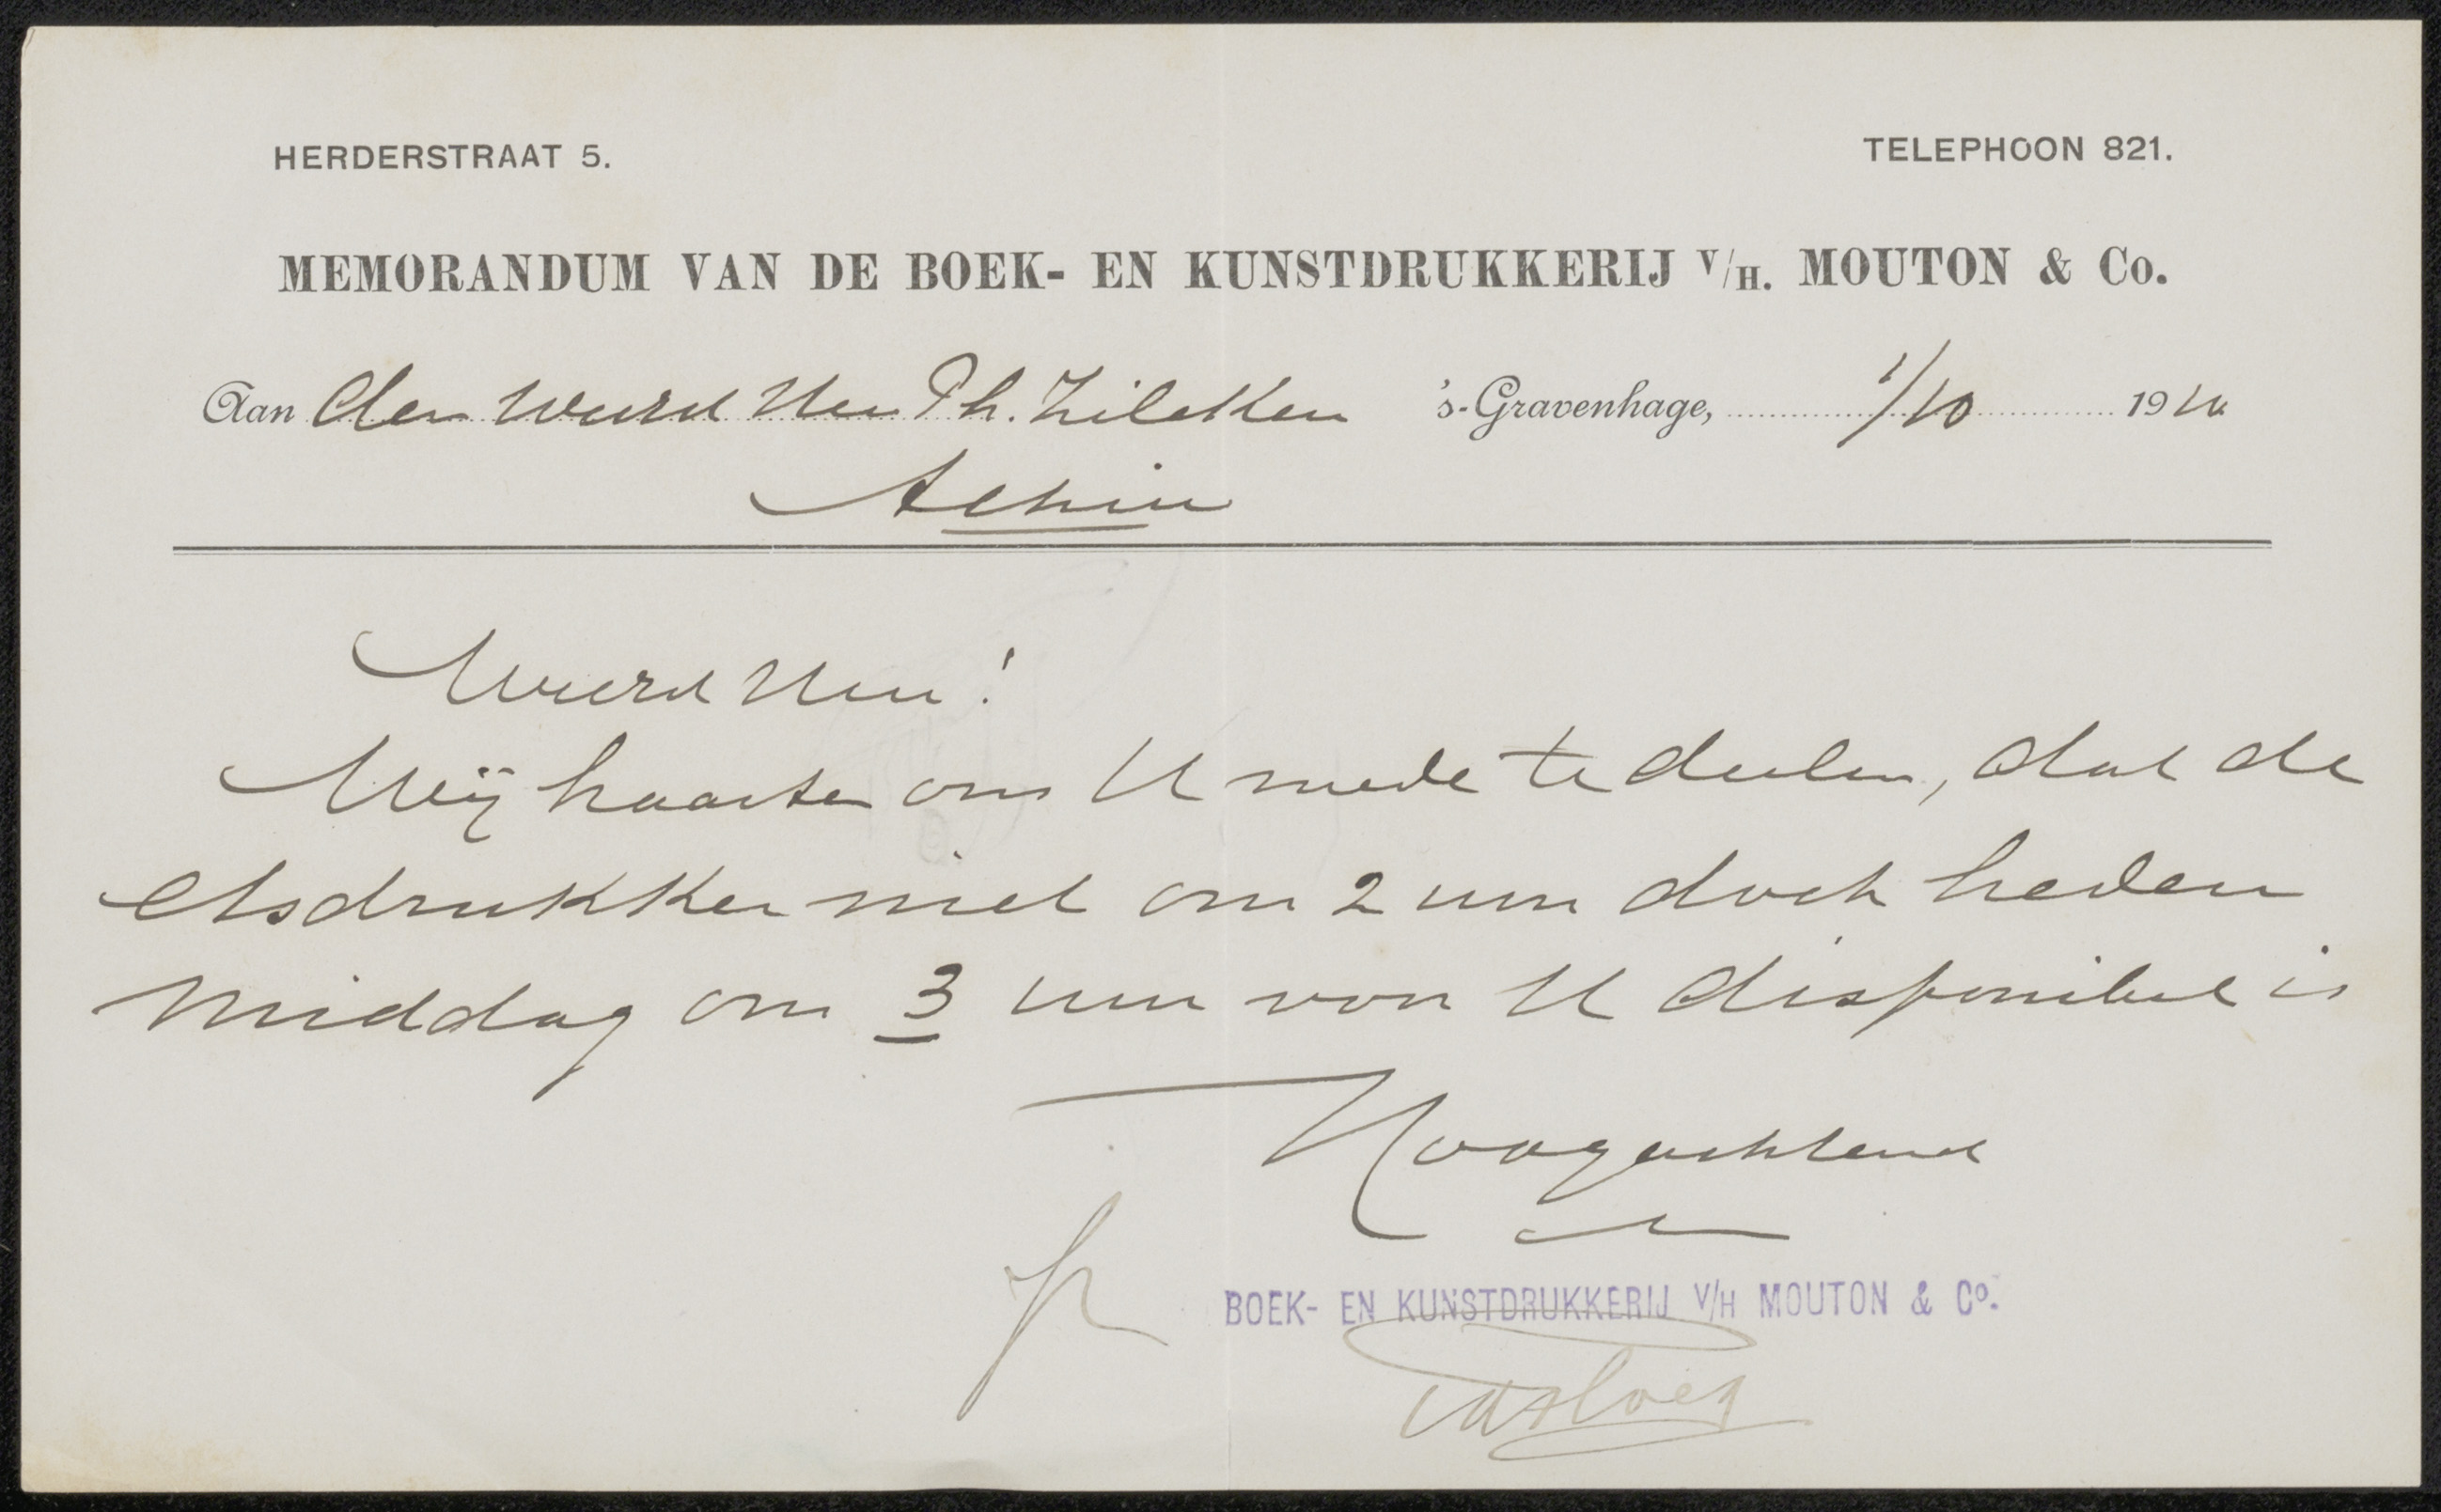 HERDERSTRAAT 5. TELEPHOON 821.
MEMORANDUM VAN DE BOEK- EN KUNSTDRUKKERIJ V/H. MOUTON & Co.
Aan den WelEd Heer Ph. Zilcken 's-Gravenhage, 1/10 1910
Alhier
WelEd Heer!
Wij haasten ons U mede te deelen, dat de
etsdrukker niet om 2 uur doch heden
middag om 3 uur voor U disponibel is
Hoogachtend
BOEK- EN KUNSTDRUKKERIJ V/H MOUTON & Co.